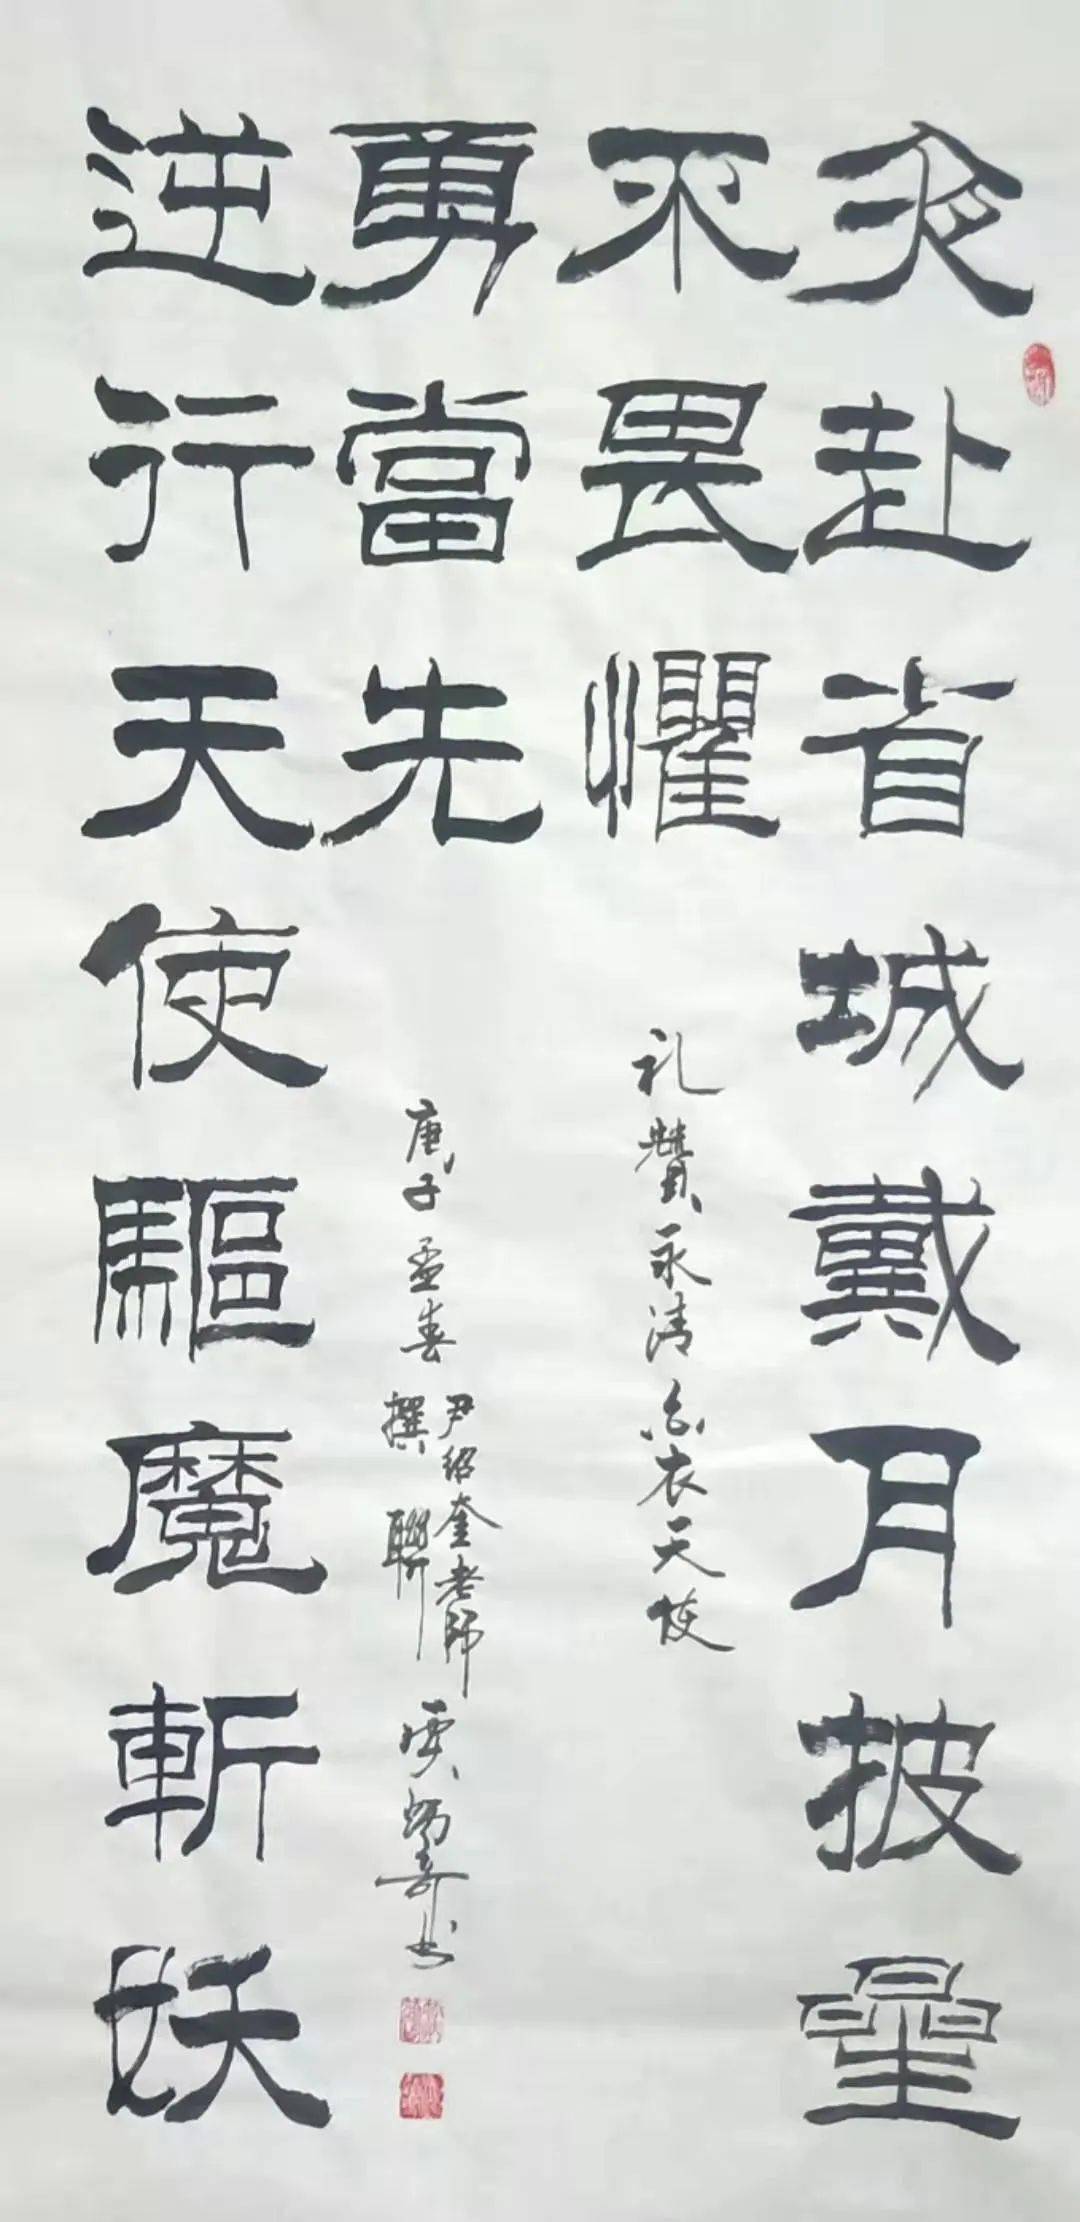 夜赴省城戴月披星
不畏懼
礼贊永清白衣天使
逆行天使驅魔斬妖
勇當先
庚子孟春
尹绍奎老師
撰聯
书